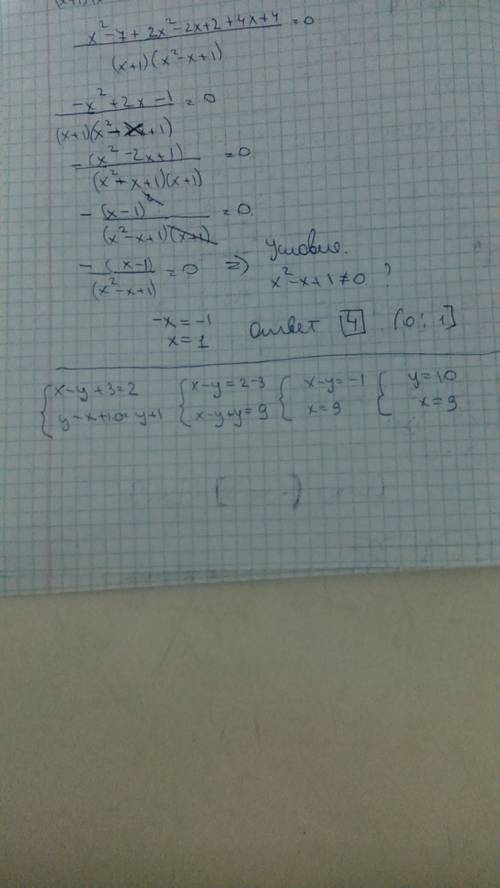 x²-7+2x²-2x+2+4x+4 / (x+1)(x²-x+1) = 0
-x²+2x-1 / (x+1)(x²-x+1) = 0
-(x²-2x+1) / (x²-x+1)(x+1) = 0
-(x-1)² / (x²-x+1)(x+1) = 0.
-(x-1) / (x²-x+1) = 0 => Условие.
x²-x+1≠0 ?
-x=-1
x=1
ответ 4 (0; 1]
{ x-y+3=2 { x-y=2-3 { x-y=-1 { y=10
y-x+10=y+1 x-y+y=9 x=9 x=9